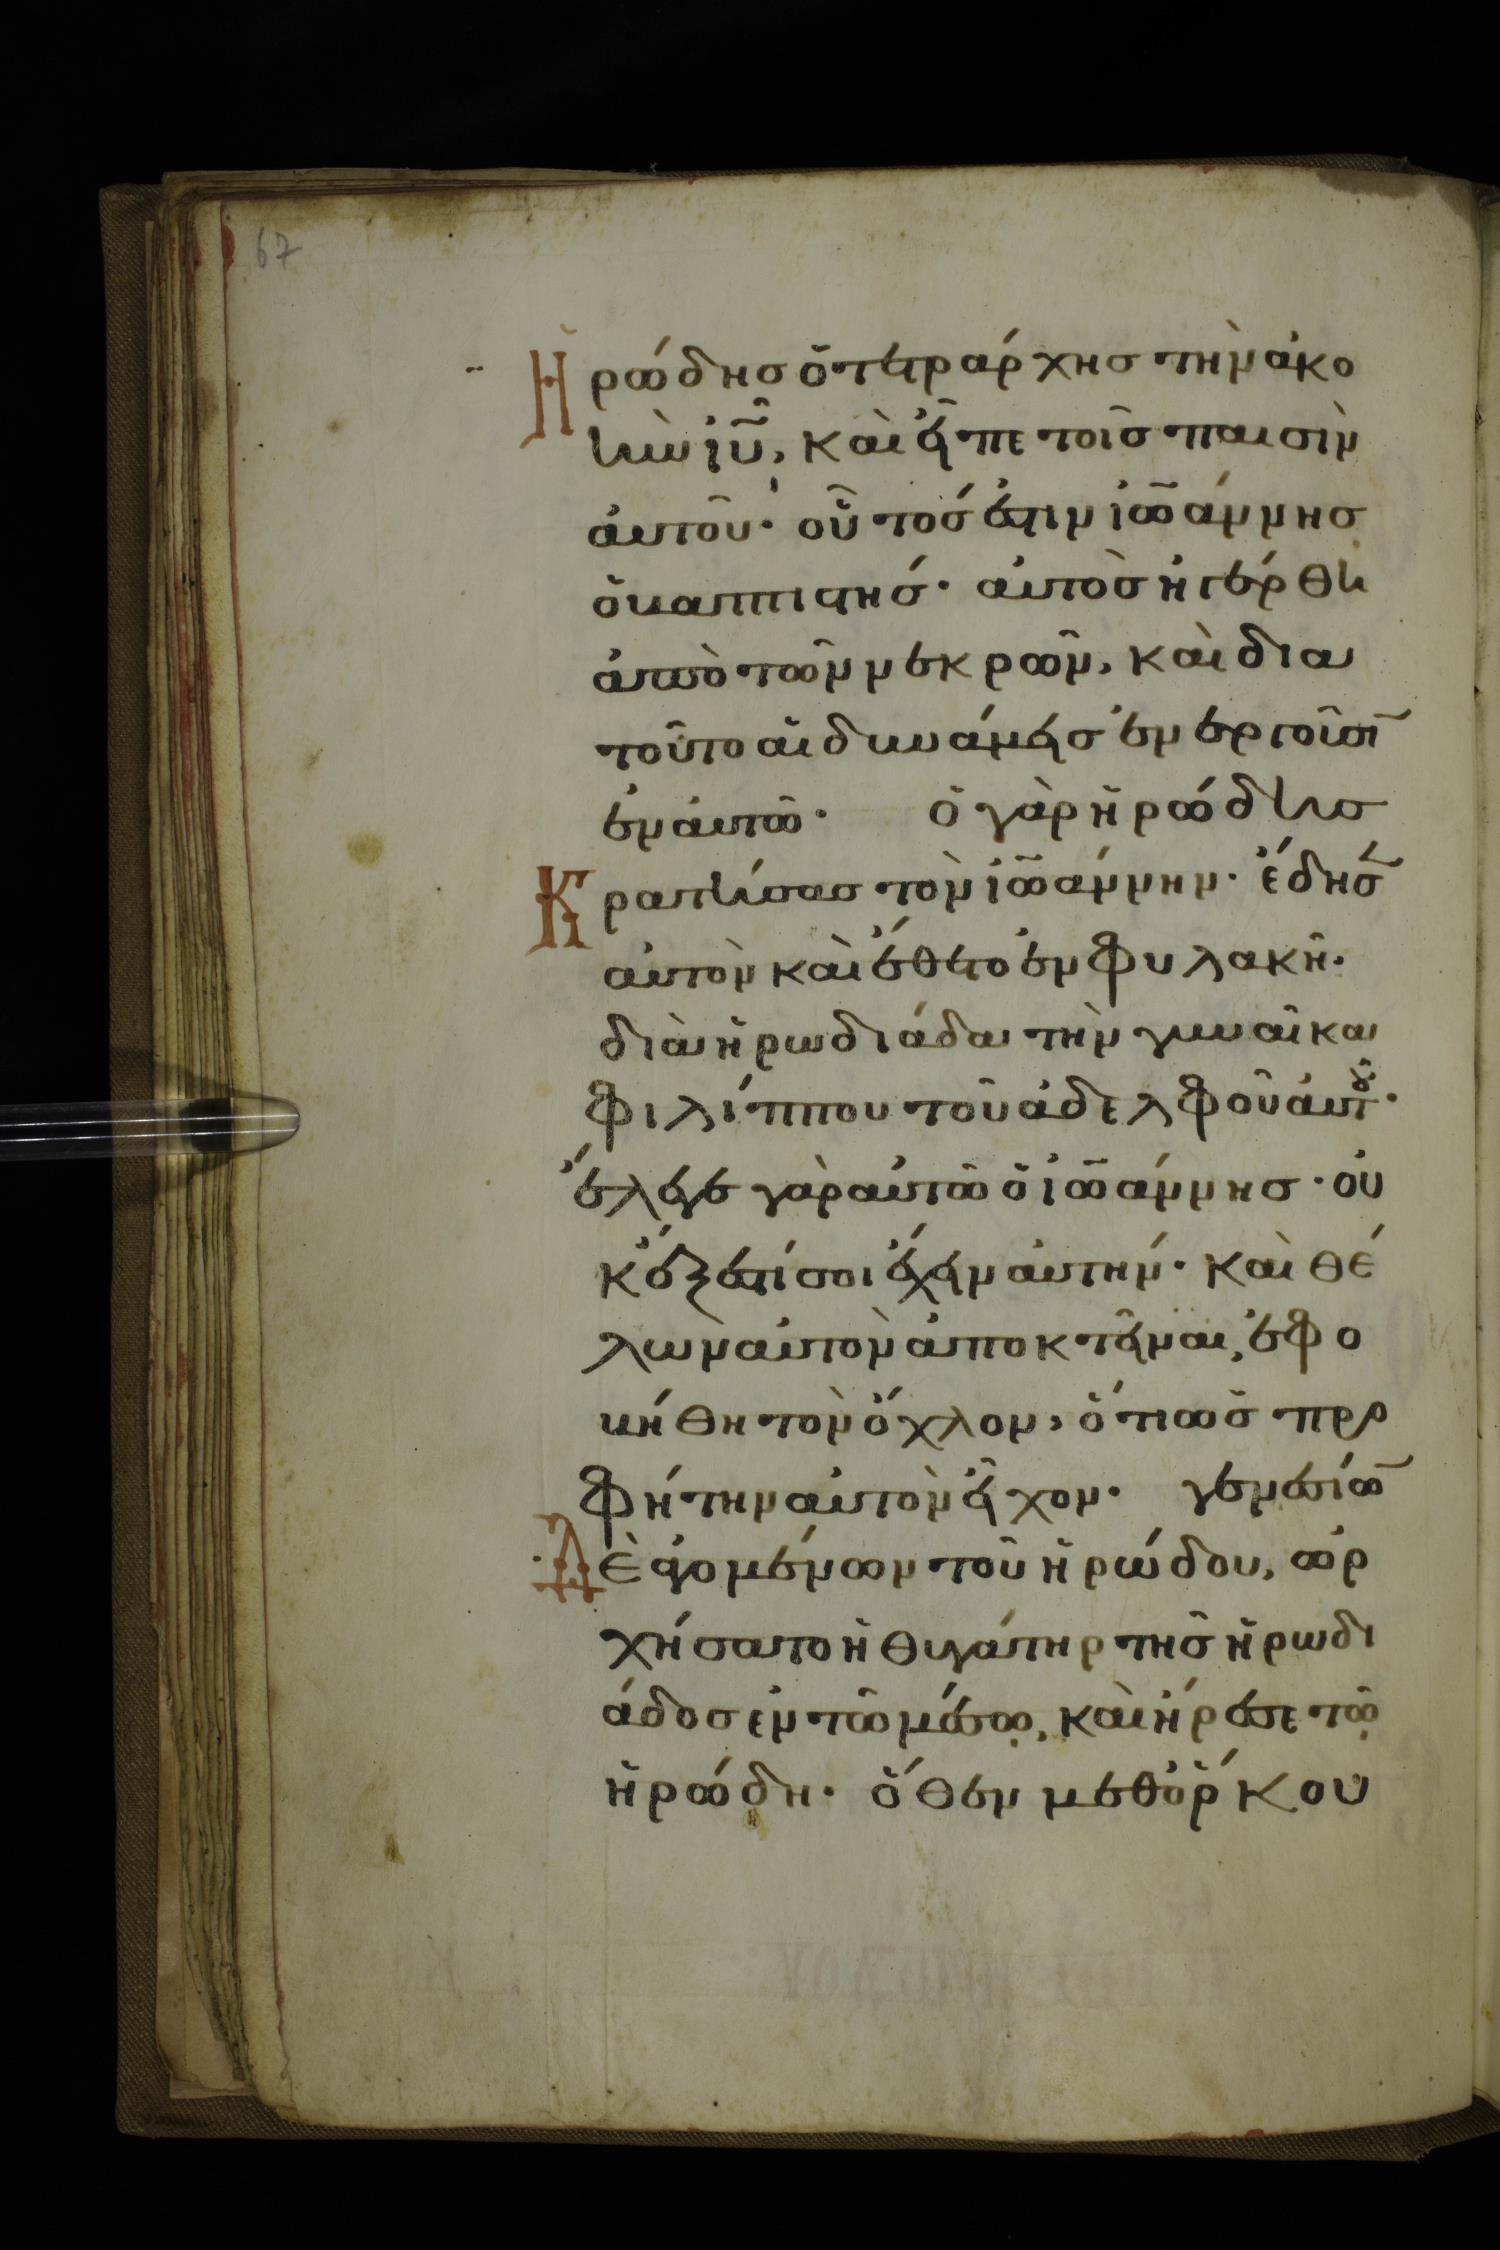 67
Ἡρώδης ὁ τετράρχης τὴν ἀκο
ὴν ἰῦ, καὶ εἶπε τοῖς παισὶν
αὐτοῦ· οὗτός ἐστιν ἰωάννης
ὁ βαπτιστής· αὐτὸς ἠγέρθη
ἀπὸ τῶν νεκρῶν, καὶ δια
τοῦτο αἱ δυνάμεις ἐνεργοῦσῑ
ἐν αὐτῶ· ὁ γὰρ ἡρώδης
Κρατήσας τὸν ἰωάννην· ἔδησ
αὐτὸν καὶ ἔθετο ἐν φυλακῆ·
διὰ ἡρωδιάδα τὴν γυναῖκα
φιλίππου τοῦ ἀδελφοῦ αὐτοῦ·
ἔλεγε γὰρ αὐτῶ ὁ ἰωάννης· οὐ
κ ἔξεστί σοι ἔχειν αὐτήν· καὶ θέ
λων αὐτὸν ἀποκτεῖναι, ἐφο
βήθη τὸν ὄχλον, ὅτι ὡς προ
φήτην αὐτὸν εἶχον· γενεσίω̄
Δὲ ἀγομένων τοῦ ἡρώδου, ὠρ
χήσατο ἡ θυγάτηρ τῆς ἡρωδι
άδος ἐν τῶ μέσω, καὶ ἤρεσε τῶ
ἡρώδη· ὅθεν μεθ' ὅρκου